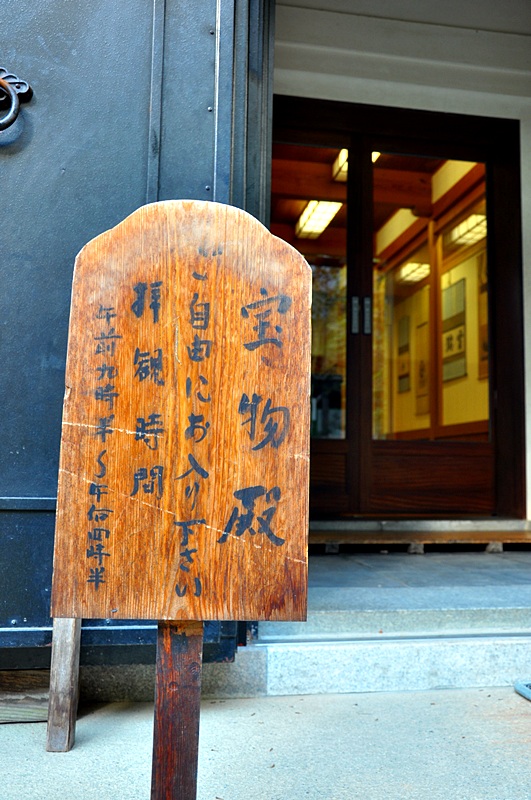 宝物殿
ご自由にお入り下さい
拝観時間
午前九時半〜午后四時半